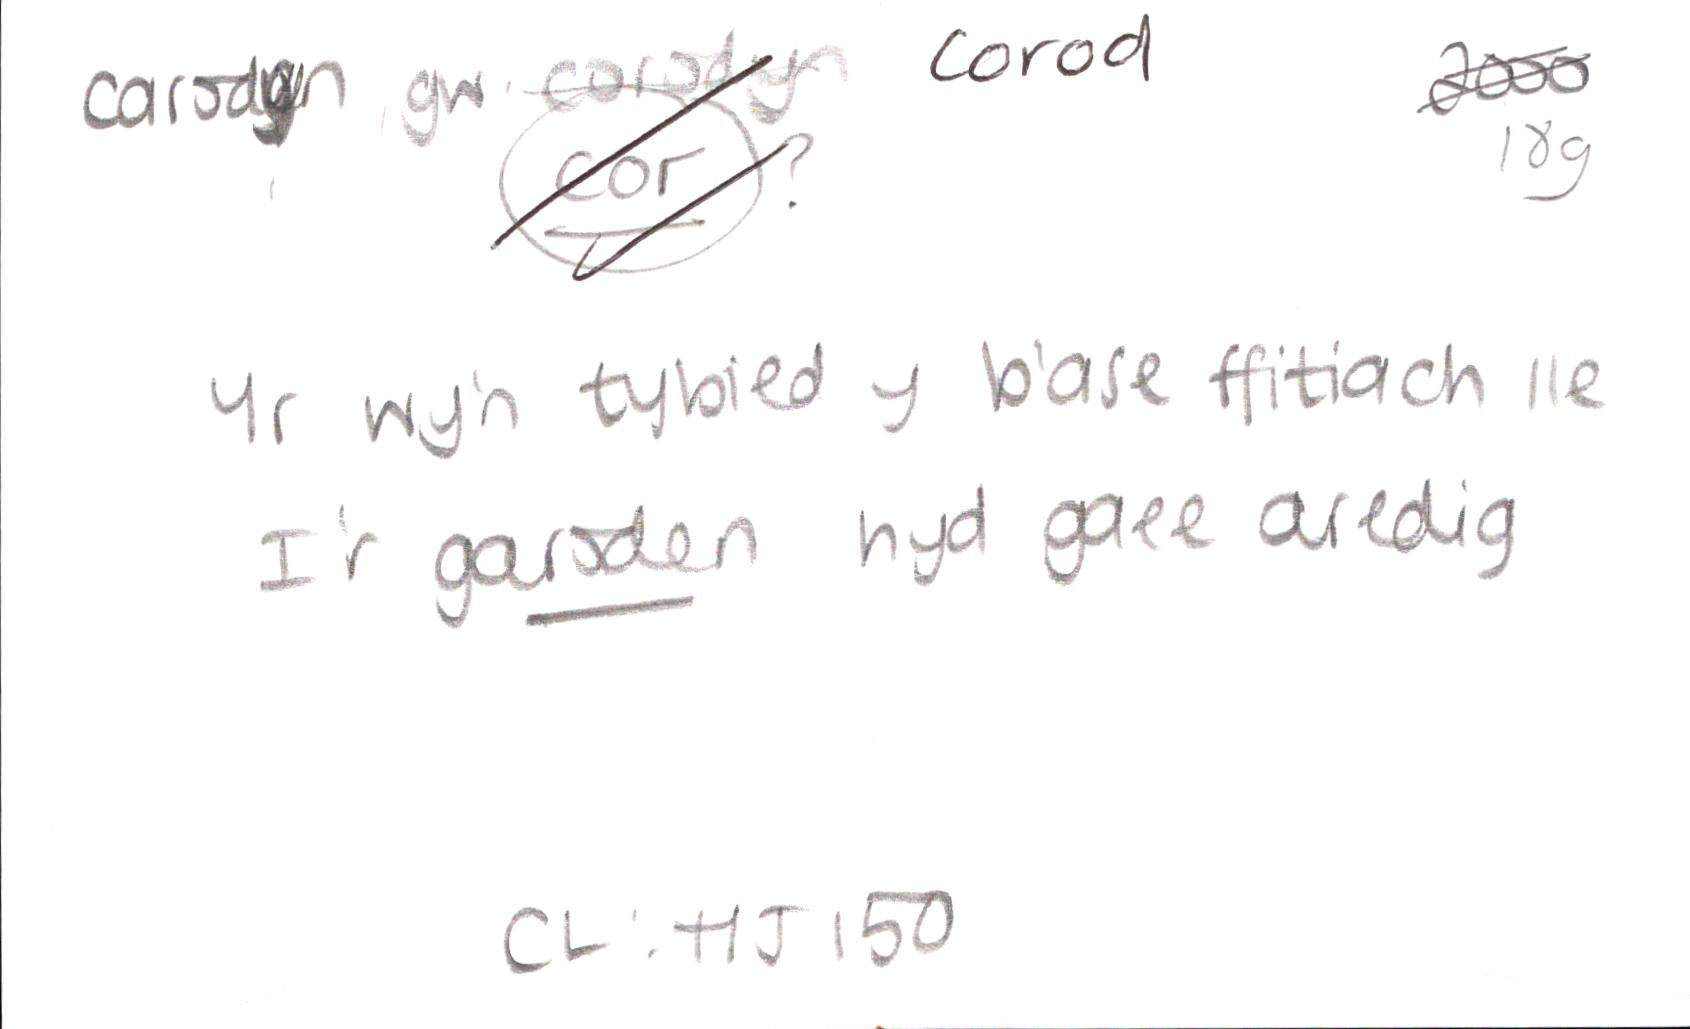 carodyn gw. corodyn corod 2000
cor ? 18g
Yr wy'n tybied y b'ase ffitiach lle
I'r garoden hyd gaee aredig
CL: HJ 150